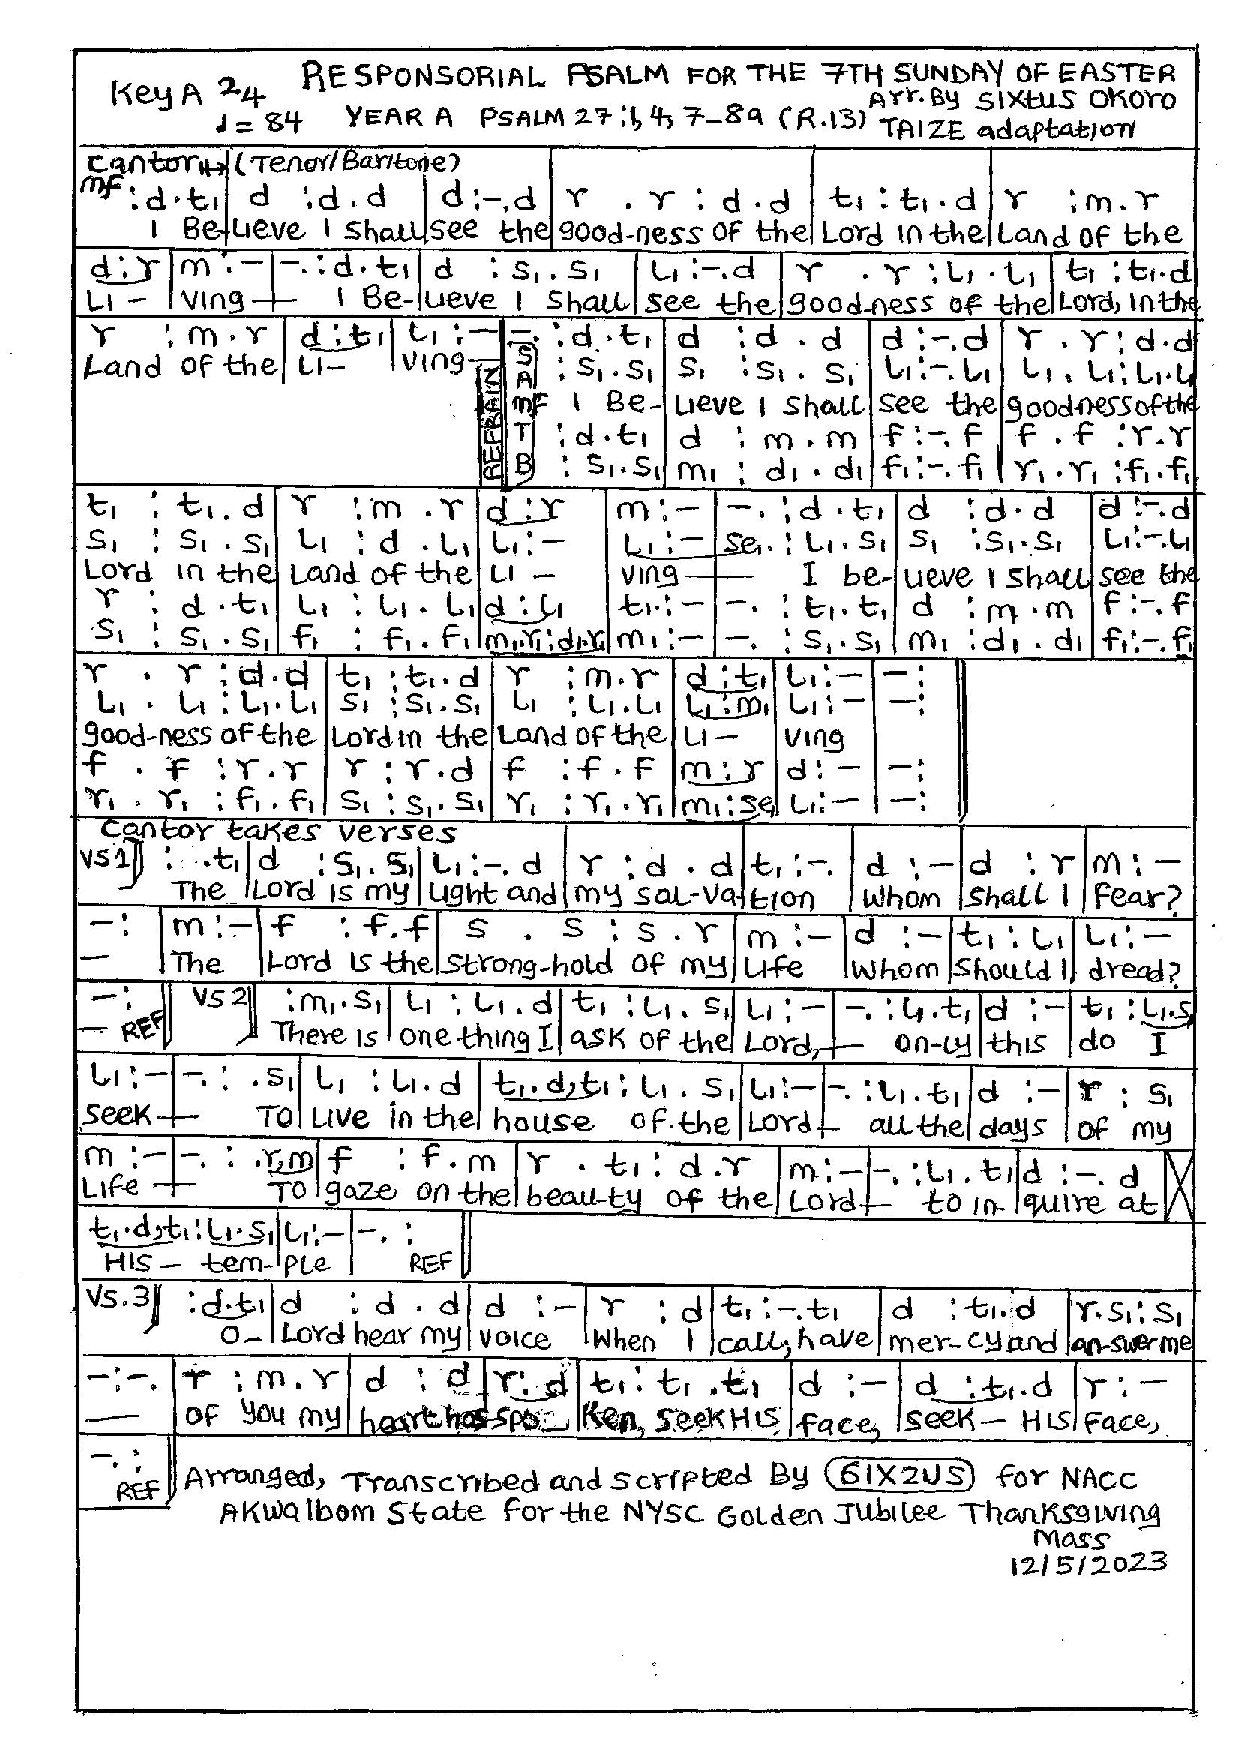 RESPONSORIAL PSALM FOR THE 7TH SUNDAY OF EASTER
Key A 24
Arr. By SIXTUS OKORO
♩= 84 YEAR A PSALM 27:1,4,7-8a (R.13) TAIZE adaptation
Cantor (Tenor/Baritone)
mf :d.t₁|d :d.d|d:-.d|r . r :d.d|t₁:t₁.d|r :m.r
I Be-lieve I shall see the good-ness of the Lord in the Land of the
d:r|m:-|-.:d.t₁|d :s₁.s₁|L₁:-.d|r . r:L₁.L₁|t₁:t₁.d
Li- ving- I Be-lieve I shall see the goodness of the Lord, in the
r :m.r|d:t₁|L₁:-|-.:d.t₁|d :d.d|d:-.d|r . r:d.d
REFRAIN SATB :s₁.s₁|s₁ :s₁.s₁|L₁:-.L₁|L₁.L₁:L₁.L₁
Land of the Li- ving- mf I Be-lieve I shall see the goodness of the
:d.t₁|d :m.m|f:-.f|f.f:r.r
:s₁.s₁|m₁:d₁.d₁|f₁:-.f₁|r₁.r₁:f₁.f₁
t₁:t₁.d|r :m.r|d:r|m:-|-.:d.t₁|d :d.d|d:-.d
s₁:s₁.s₁|L₁:d.L₁|L₁:-|L₁:-|se₁.:L₁.s₁|s₁:s₁.s₁|L₁:-.L₁
Lord in the Land of the Li- ving- I be-lieve I shall see the
r:d.t₁|L₁:L₁.L₁|d:L₁|t₁:-|-.:t₁.t₁|d:m.m|f:-.f
s₁:s₁.s₁|f₁:f₁.f₁|m₁.r₁:d₁.r₁|m₁:-|-.:s₁.s₁|m₁:d₁.d₁|f₁:-.f₁
r . r:d.d|t₁:t₁.d|r :m.r|d:t₁|L₁:-|-:
L₁.L₁:L₁.L₁|s₁:s₁.s₁|L₁:L₁.L₁|L₁:m₁|L₁:-|-:
good-ness of the Lord in the Land of the Li- ving
f . f:r.r|r:r.d|f :f.f|m:r|d:-|-:
r₁.r₁:f₁.f₁|s₁:s₁.s₁|r₁:r₁.r₁|m₁:se₁|L₁:-|-:
Cantor takes verses
VS1 : .t₁|d :s₁.s₁|L₁:-.d|r:d.d|t₁:-.|d:-|d:r|m:-
The Lord is my light and my sal-vation whom shall I fear?
-:|m:-|f :f.f|s . s:s.r|m:-|d:-|t₁:L₁|L₁:-
- The Lord is the strong-hold of my Life whom should I dread?
-:|VS2 :m₁.s₁|L₁:L₁.d|t₁:L₁.s₁|L₁:-|-.:L₁.t₁|d:-|t₁:L₁.s₁
- REF There is one thing I ask of the Lord,- on-ly this do I
L₁:-|-.: .s₁|L₁:L₁.d|t₁.d,t₁:L₁.s₁|L₁:-|-.:L₁.t₁|d:-|r:s₁
seek- TO Live in the house of the Lord- all the days of my
m:-|-.: .r,m|f :f.m|r . t₁:d.r|m:-|-.:L₁.t₁|d:-.d
Life- TO gaze on the beau-ty of the Lord- to in-quire at
t₁.d,t₁:L₁.s₁|L₁:-|-.:
HIS- tem-ple REF
VS.3 :d.t₁|d :d.d|d:-|r:d|t₁:-.t₁|d:t₁.d|r.s₁:s₁
O- Lord hear my voice when I call, have mer-cy and an-swer me
-:-.|r:m.r|d:d|r:d|t₁:t₁.t₁|d:-|d:t₁.d|r:-
- of you my heart has spo-ken, seek HIS face, seek- HIS Face,
-.:
REF
Arranged, Transcribed and scripted By 6IX2US for NACC
AKwaIbom State for the NYSC Golden Jubilee Thanksgiving
Mass
12/5/2023